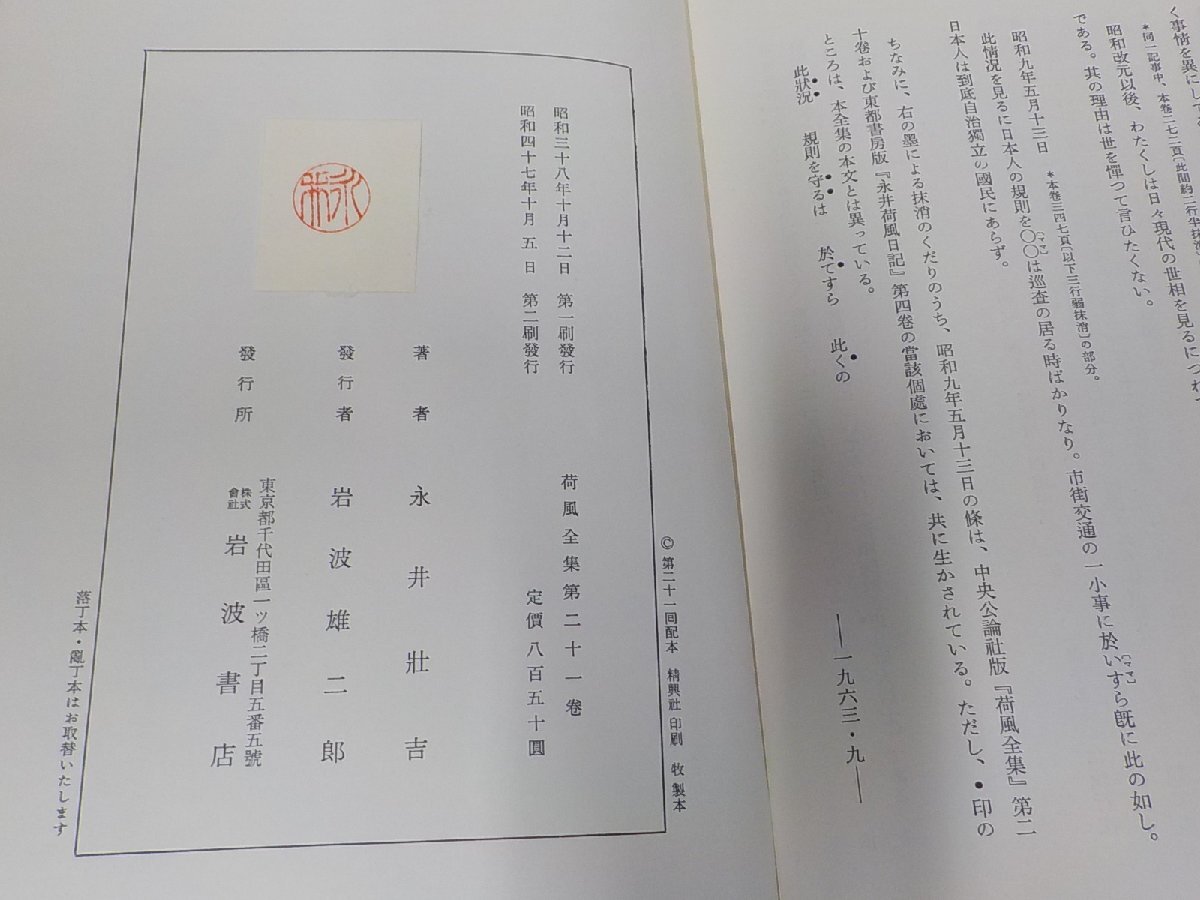 く事情を異にしてゐ
＊同一記事中、本卷二七二頁〔此間約二行半抹消〕
昭和改元以後、わたくしは日々現代の世相を見るにつれて
である。其の理由は世を憚つて言ひたくない。
＊本卷三四七頁〔以下三行弱抹消〕の部分。
昭和九年五月十三日
此情況を見るに日本人の規則を〇〇は巡査の居る時ばかりなり。市街交通の一小事に於いすら既に此の如し。
〔ママ〕
〔ママ〕
日本人は到底自治獨立の國民にあらず。
ちなみに、右の墨による抹消のくだりのうち、昭和九年五月十三日の條は、中央公論社版『荷風全集』第二
十卷および東都書房版『永井荷風日記』第四卷の當該個處においては、共に生かされている。ただし、●印の
ところは、本全集の本文とは異っている。
此狀況　規則を守るは　於てすら　此くの
——一九六三・九——
©第二十一回配本　精興社印刷　牧製本
荷風全集第二十一卷
定價八百五十圓
昭和三十八年十月十二日　第一刷發行
昭和四十七年十月五日　第二刷發行
著者　永井壯吉
發行者　岩波雄二郎
東京都千代田區一ッ橋二丁目五番五號
發行所　株式會社　岩波書店
落丁本・亂丁本はお取替いたします